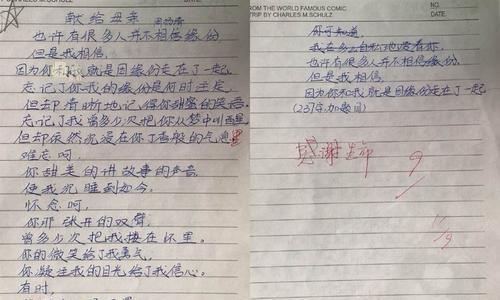 DATE.
献给母亲
也许有很多人并不相信缘份
但是我相信,
因为你和我就是因缘份走在了一起
忘记了你我的缘份是何时生长
但却清晰地记得你甜蜜的笑语
忘记了我曾多少次把你从梦中叫醒
但却依然沉浸在你丁香般的气息里
难忘啊,
你甜美的讲故事的声音
使我沉睡到如今,
怀念啊,
你那张开的双臂
曾多少次把我搂在怀里。
你的微笑给了我勇气,
你凝注我的目光给了我信心。
有时,
FROM THE WORLD FAMOUS COMIC
STRIP BY CHARLES M. SCHULZ
NO.
DATE.
你可知道,
我在多么自私地凑着你,
也许有很多人并不相信缘份,
但是我相信,
因为你和我就是因缘份走在了一起
(237字.加题目)
感谢生命
9
11/9